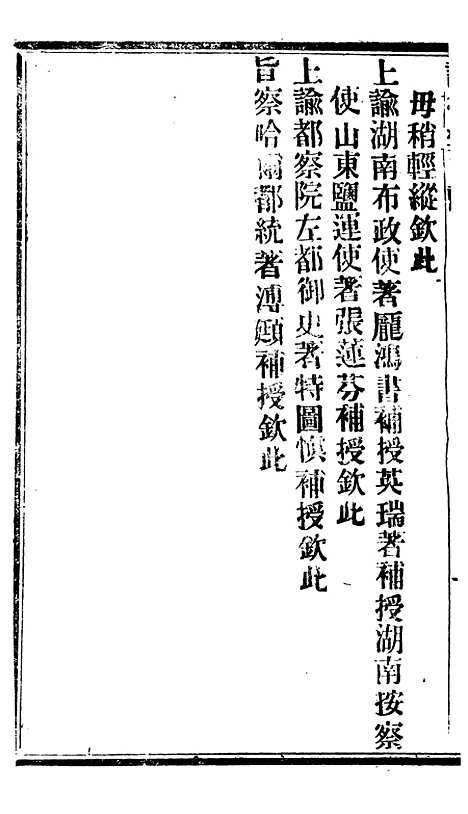 毋稍輕縱欽此
上諭湖南布政使著龐鴻書補授英瑞著補授湖南按察
使山東鹽運使著張蓮芬補授欽此
上諭都察院左都御史著特圖慎補授欽此
旨察哈爾都統著溥頲補授欽此